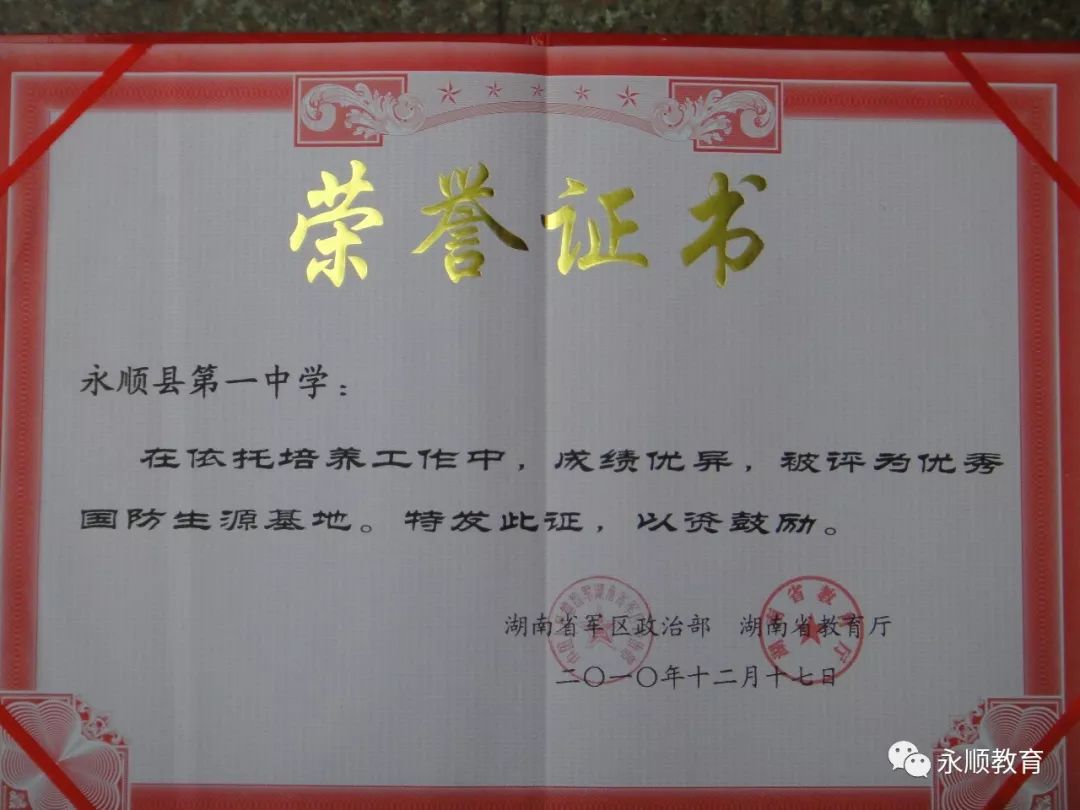 荣誉证书
永顺县第一中学：
在依托培养工作中，成绩优异，被评为优秀
国防生源基地。特发此证，以资鼓励。
湖南省军区政治部 湖南省教育厅
二〇一〇年十二月十七日
湖南省教育厅
永顺教育